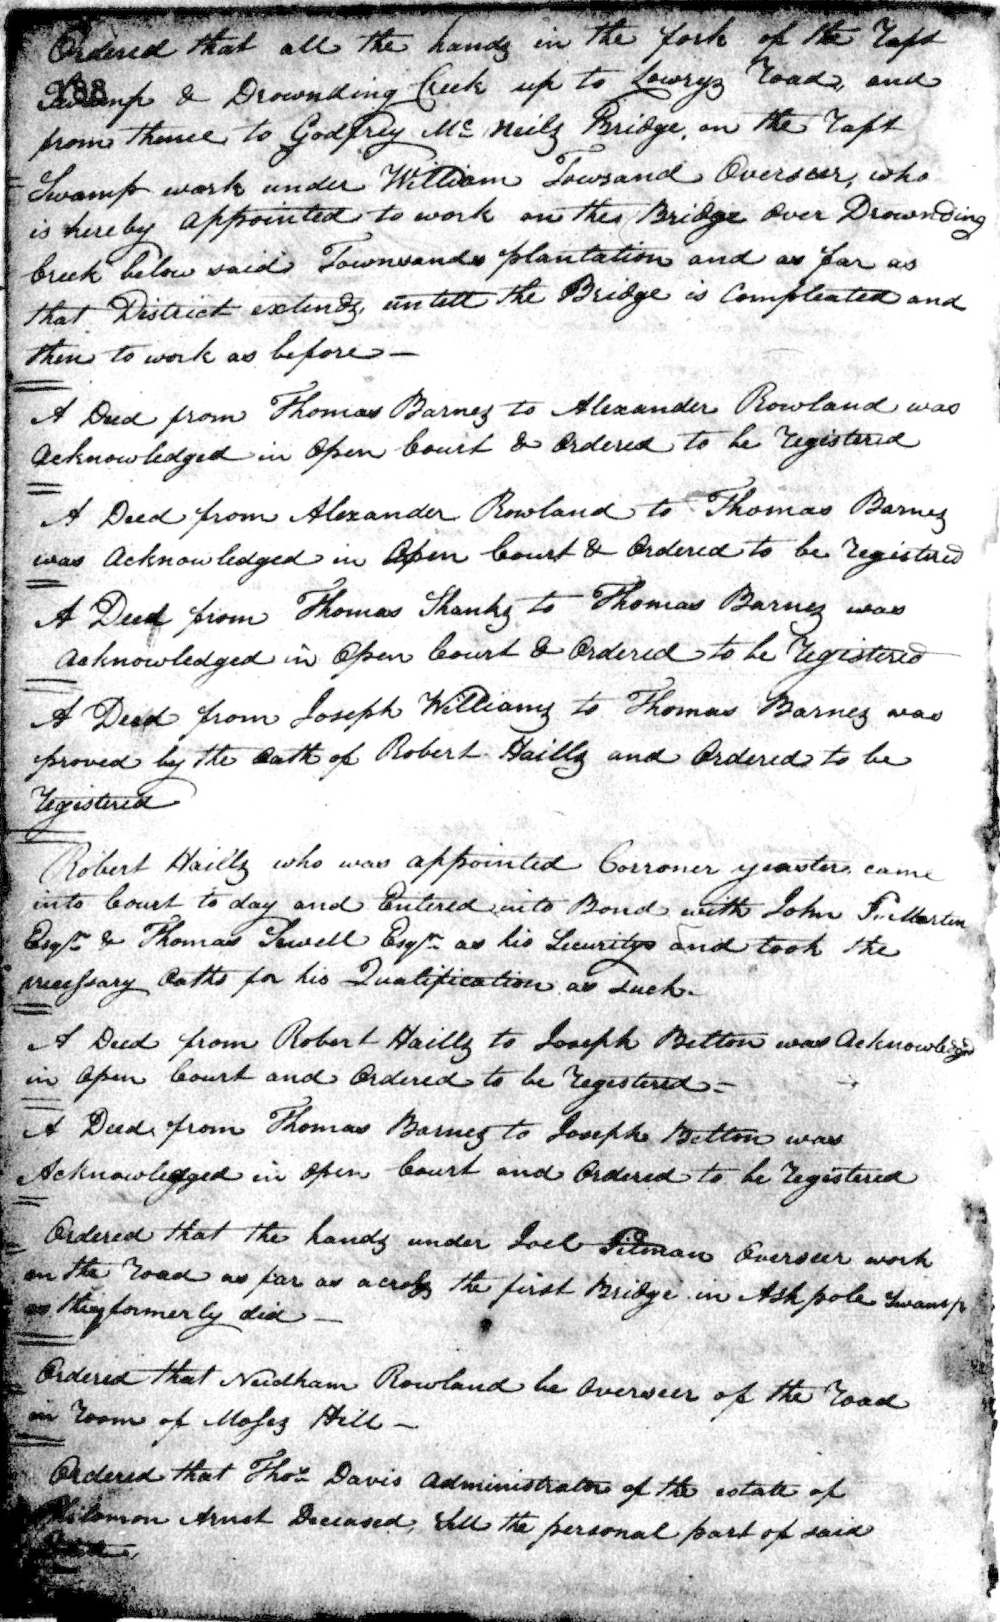 Ordered that all the hands in the fork of the Raft
Swamp & Drownding Creek up to Lowrys Road, and
from thence to Godfrey Mc Neils Bridge, on the Raft
Swamp work under William Townsand Overseer, who
is hereby appointed to work on the Bridge Over Drownding
Creek below said Townsands plantation and as far as
that District extends, untell the Bridge is Compleated and
then to work as before —
A Deed from Thomas Barnes to Alexander Rowland was
Acknowledged in Open Court & Ordered to be Registered
A Deed from Alexander Rowland to Thomas Barnes
was Acknowledged in Open Court & Ordered to be Registered
A Deed from Thomas Shanks to Thomas Barnes was
Acknowledged in Open Court & Ordered to be Registered
A Deed from Joseph Williams to Thomas Barnes was
proved by the Oath of Robert Hails and Ordered to be
Registered
Robert Hails who was appointed Corroner yeaster. came
into Court to day and Entered into Bond with John Martin
Esqr. & Thomas Sewell Esqr. as his Securitys and took the
necessary Oaths for his Qualification as Such.
A Deed from Robert Hails to Joseph Betton was Acknowledged
in Open Court and Ordered to be Registered =
A Deed from Thomas Barnes to Joseph Betton was
Acknowledged in Open Court and Ordered to be Registered
Ordered that the hands under Joel Pitman Overseer work
on the Road as far as across the first Bridge in Ashpole Swamp
as they formerly did —
Ordered that Needham Rowland be Overseer of the Road
in Room of Moses Hill —
Ordered that Thos. Davis Administrator of the estate of
Philomon Deceased, Sell the personal part of said